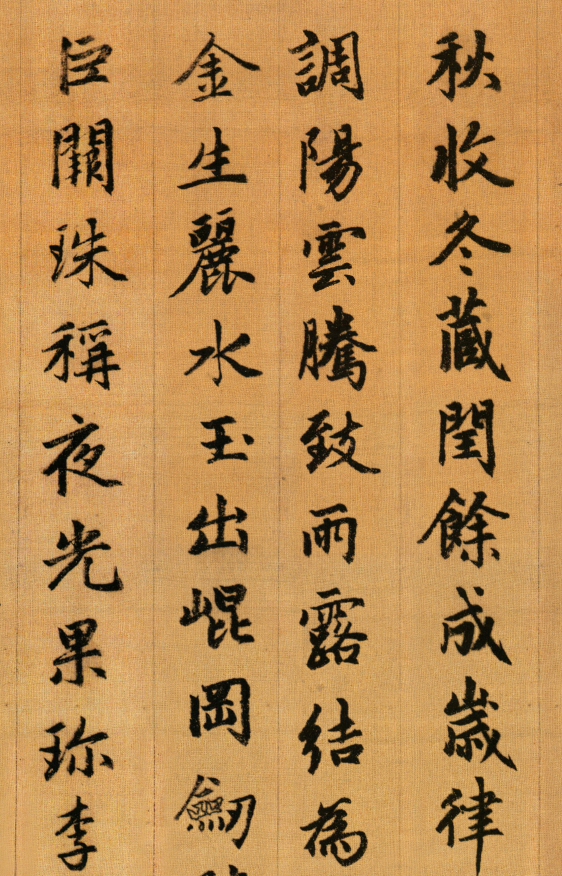 秋收冬蔵閏餘成歲律
調陽雲騰致雨露結為
金生麗水玉出崐岡劒
巨闕珠稱夜光果珎李